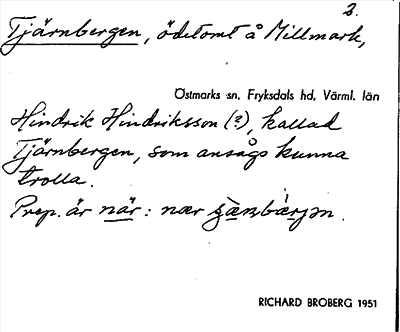 2.
Tjärnbergen, ödetomt å Millmark,
Östmarks sn, Fryksdals hd, Värml. län
Hindrik Hindriksson (?), kallad
Tjärnbergen, som ansågs kunna
trolla.
Prep. är när: nær
RICHARD BROBERG 1951